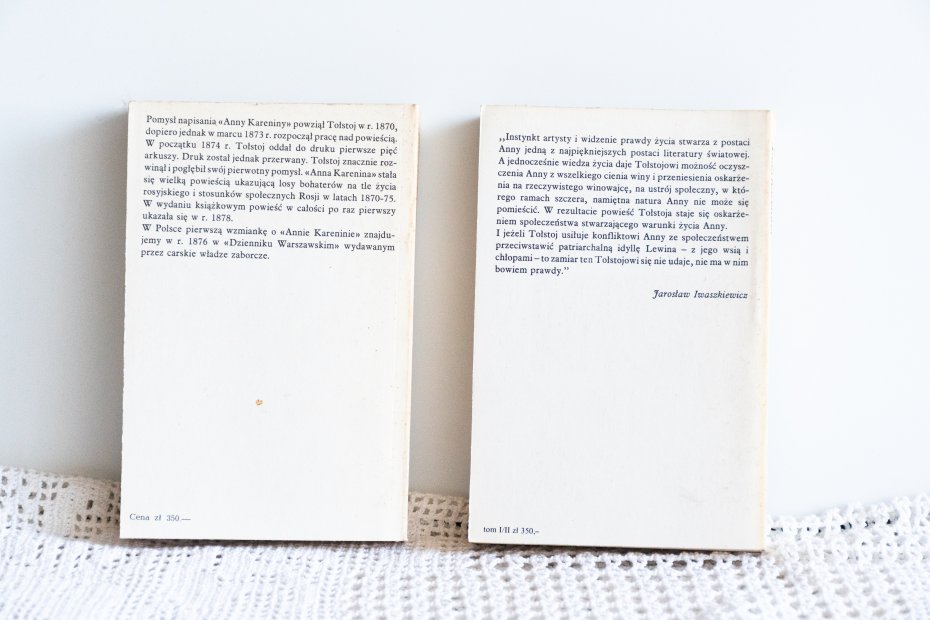 Pomysł napisania «Anny Kareniny» powziął Tołstoj w r. 1870,
dopiero jednak w marcu 1873 r. rozpoczął pracę nad powieścią.
W początku 1874 r. Tołstoj oddał do druku pierwsze pięć
arkuszy. Druk został jednak przerwany. Tołstoj znacznie roz-
winął i pogłębił swój pierwotny pomysł. «Anna Karenina» stała
się wielką powieścią ukazującą losy bohaterów na tle życia
rosyjskiego i stosunków społecznych Rosji w latach 1870-75.
W wydaniu książkowym powieść w całości po raz pierwszy
ukazała się w r. 1878.
W Polsce pierwszą wzmiankę o «Annie Kareninie» znajdu-
jemy w r. 1876 w «Dzienniku Warszawskim» wydawanym
przez carskie władze zaborcze.
Cena zł 350.—
,,Instynkt artysty i widzenie prawdy życia stwarza z postaci
Anny jedną z najpiękniejszych postaci literatury światowej.
A jednocześnie wiedza życia daje Tołstojowi możność oczysz-
czenia Anny z wszelkiego cienia winy i przeniesienia oskarże-
nia na rzeczywistego winowajcę, na ustrój społeczny, w któ-
rego ramach szczera, namiętna natura Anny nie może się
pomieścić. W rezultacie powieść Tołstoja staje się oskarże-
niem społeczeństwa stwarzającego warunki życia Anny.
I jeżeli Tołstoj usiłuje konfliktowi Anny ze społeczeństwem
przeciwstawić patriarchalną idyllę Lewina – z jego wsią i
chłopami – to zamiar ten Tołstojowi się nie udaje, nie ma w nim
bowiem prawdy.”
Jarosław Iwaszkiewicz
tom I/II zł 350,–